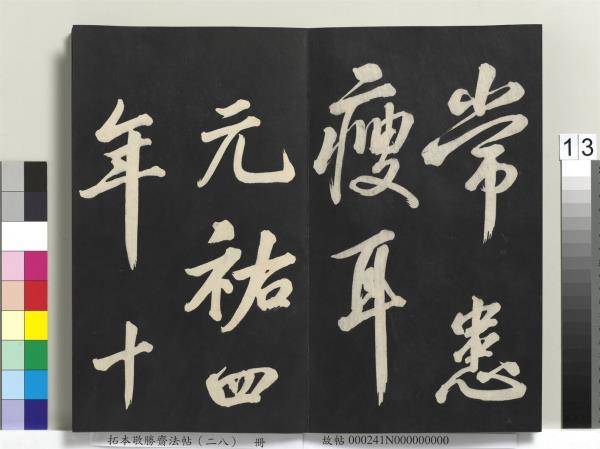 常患
瘦耳
元祐四
年十
13
拓本敬勝齋法帖（二八） 冊
故帖 000241N000000000